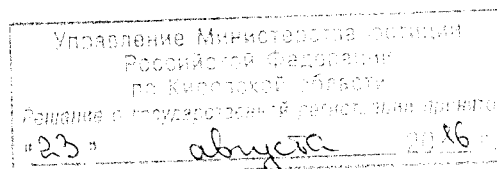 Управление Министерства юстиции
Российской Федерации
по Кировской области
Решение о государственной регистрации принято
"23" августа 2016 г.